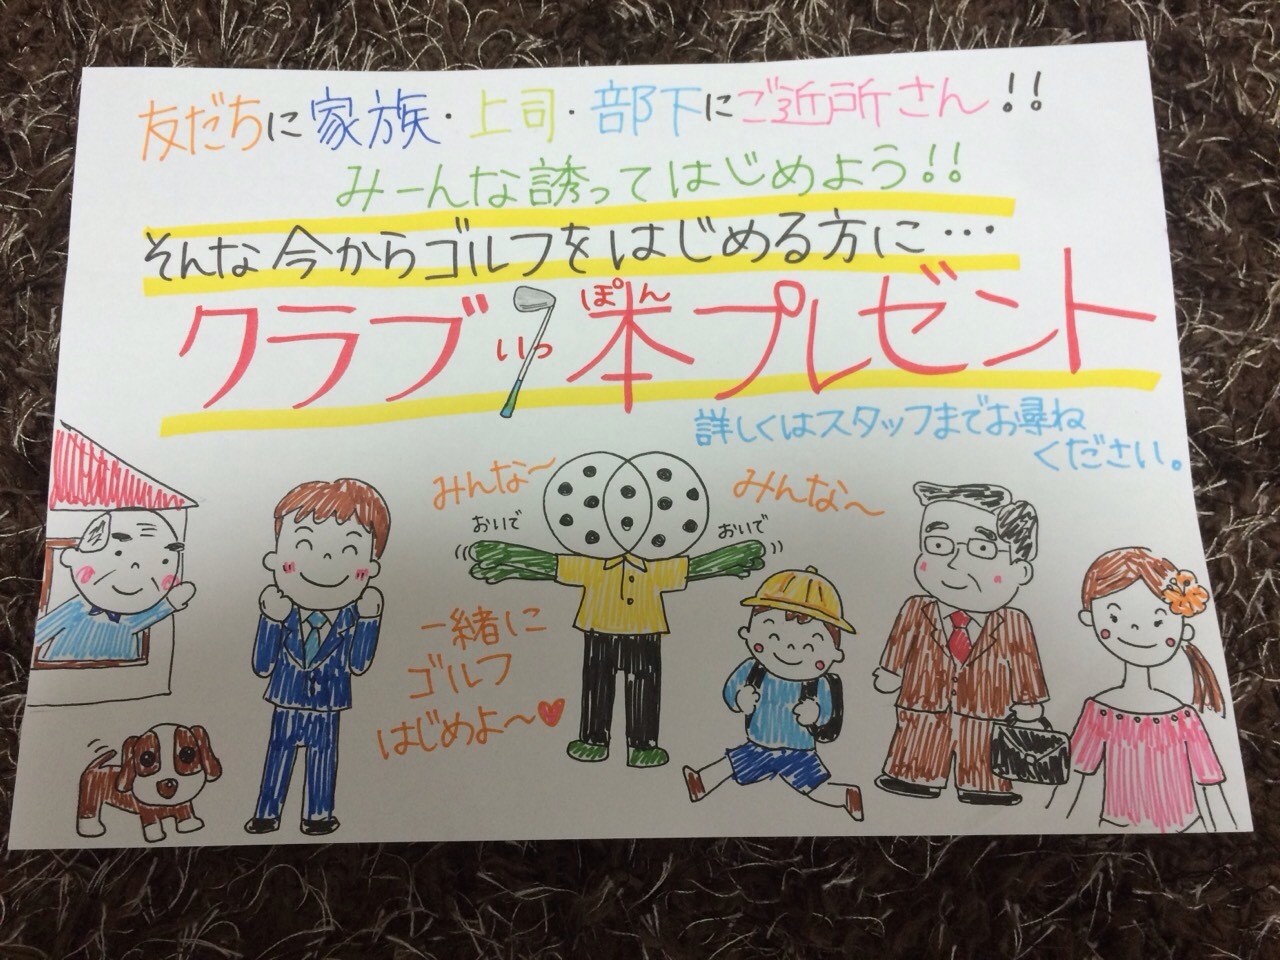 友だちに家族・上司・部下にご近所さん!!
みーんな誘ってはじめよう!!
そんな今からゴルフをはじめる方に…
クラブ いっ本ぽんプレゼント
詳しくはスタッフまでお尋ね
ください。
みんな～
おいで
みんな～
おいで
一緒に
ゴルフ
はじめよ～♥